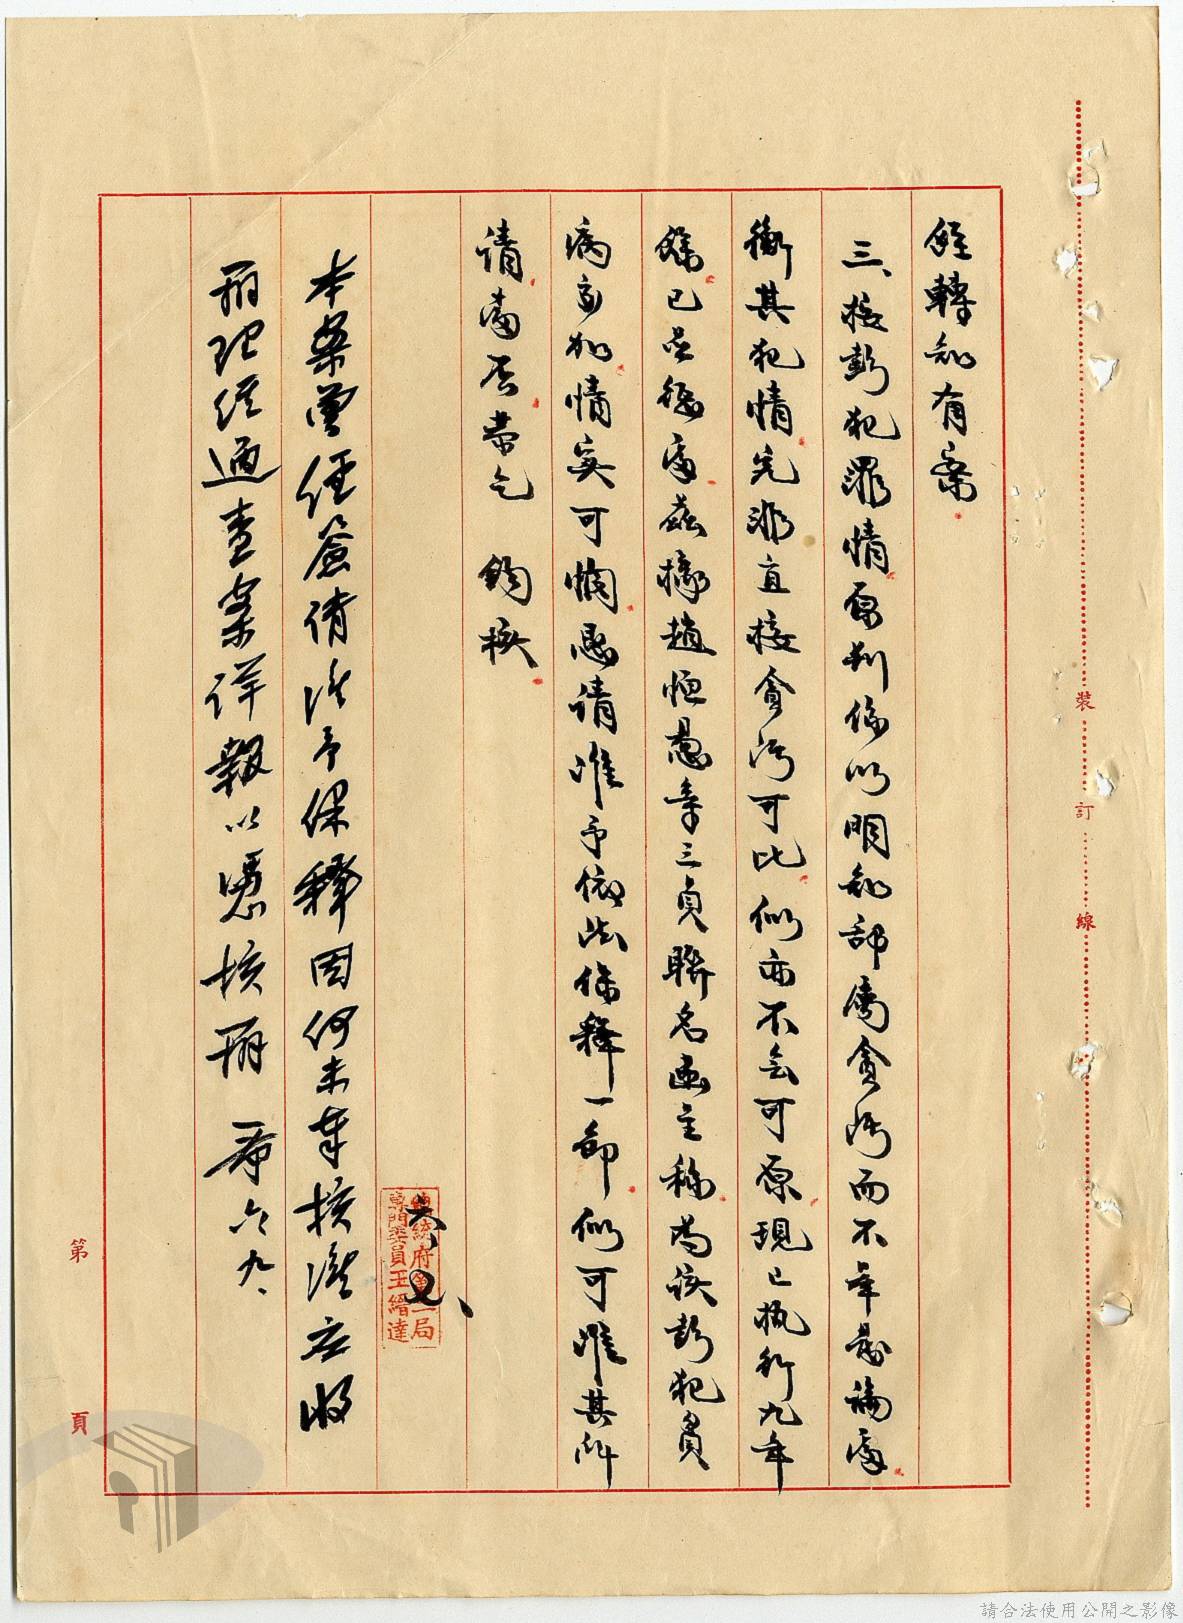 經轉知有案.
三、按彭犯罪情原判係以明知部屬貪污而不舉發論處.
衡其犯情究非直接貪污可比.似亦不無可原現已執行九年
餘.已足懲處.茲據趙恒惖等三員聯名函主稱.為該彭犯負
病.家如.情實可憫.懇請准予依法保釋一節.似可准其所
請.當否.
敬乞 鈞核.
總統府第一局
專門委員王縉達
六、七、
本案曾經簽請准予保釋因何未奉核准應收
研究從速查案詳報以憑核辦 希 六九、
裝 訂 線
第 頁
請合法使用公開之影像